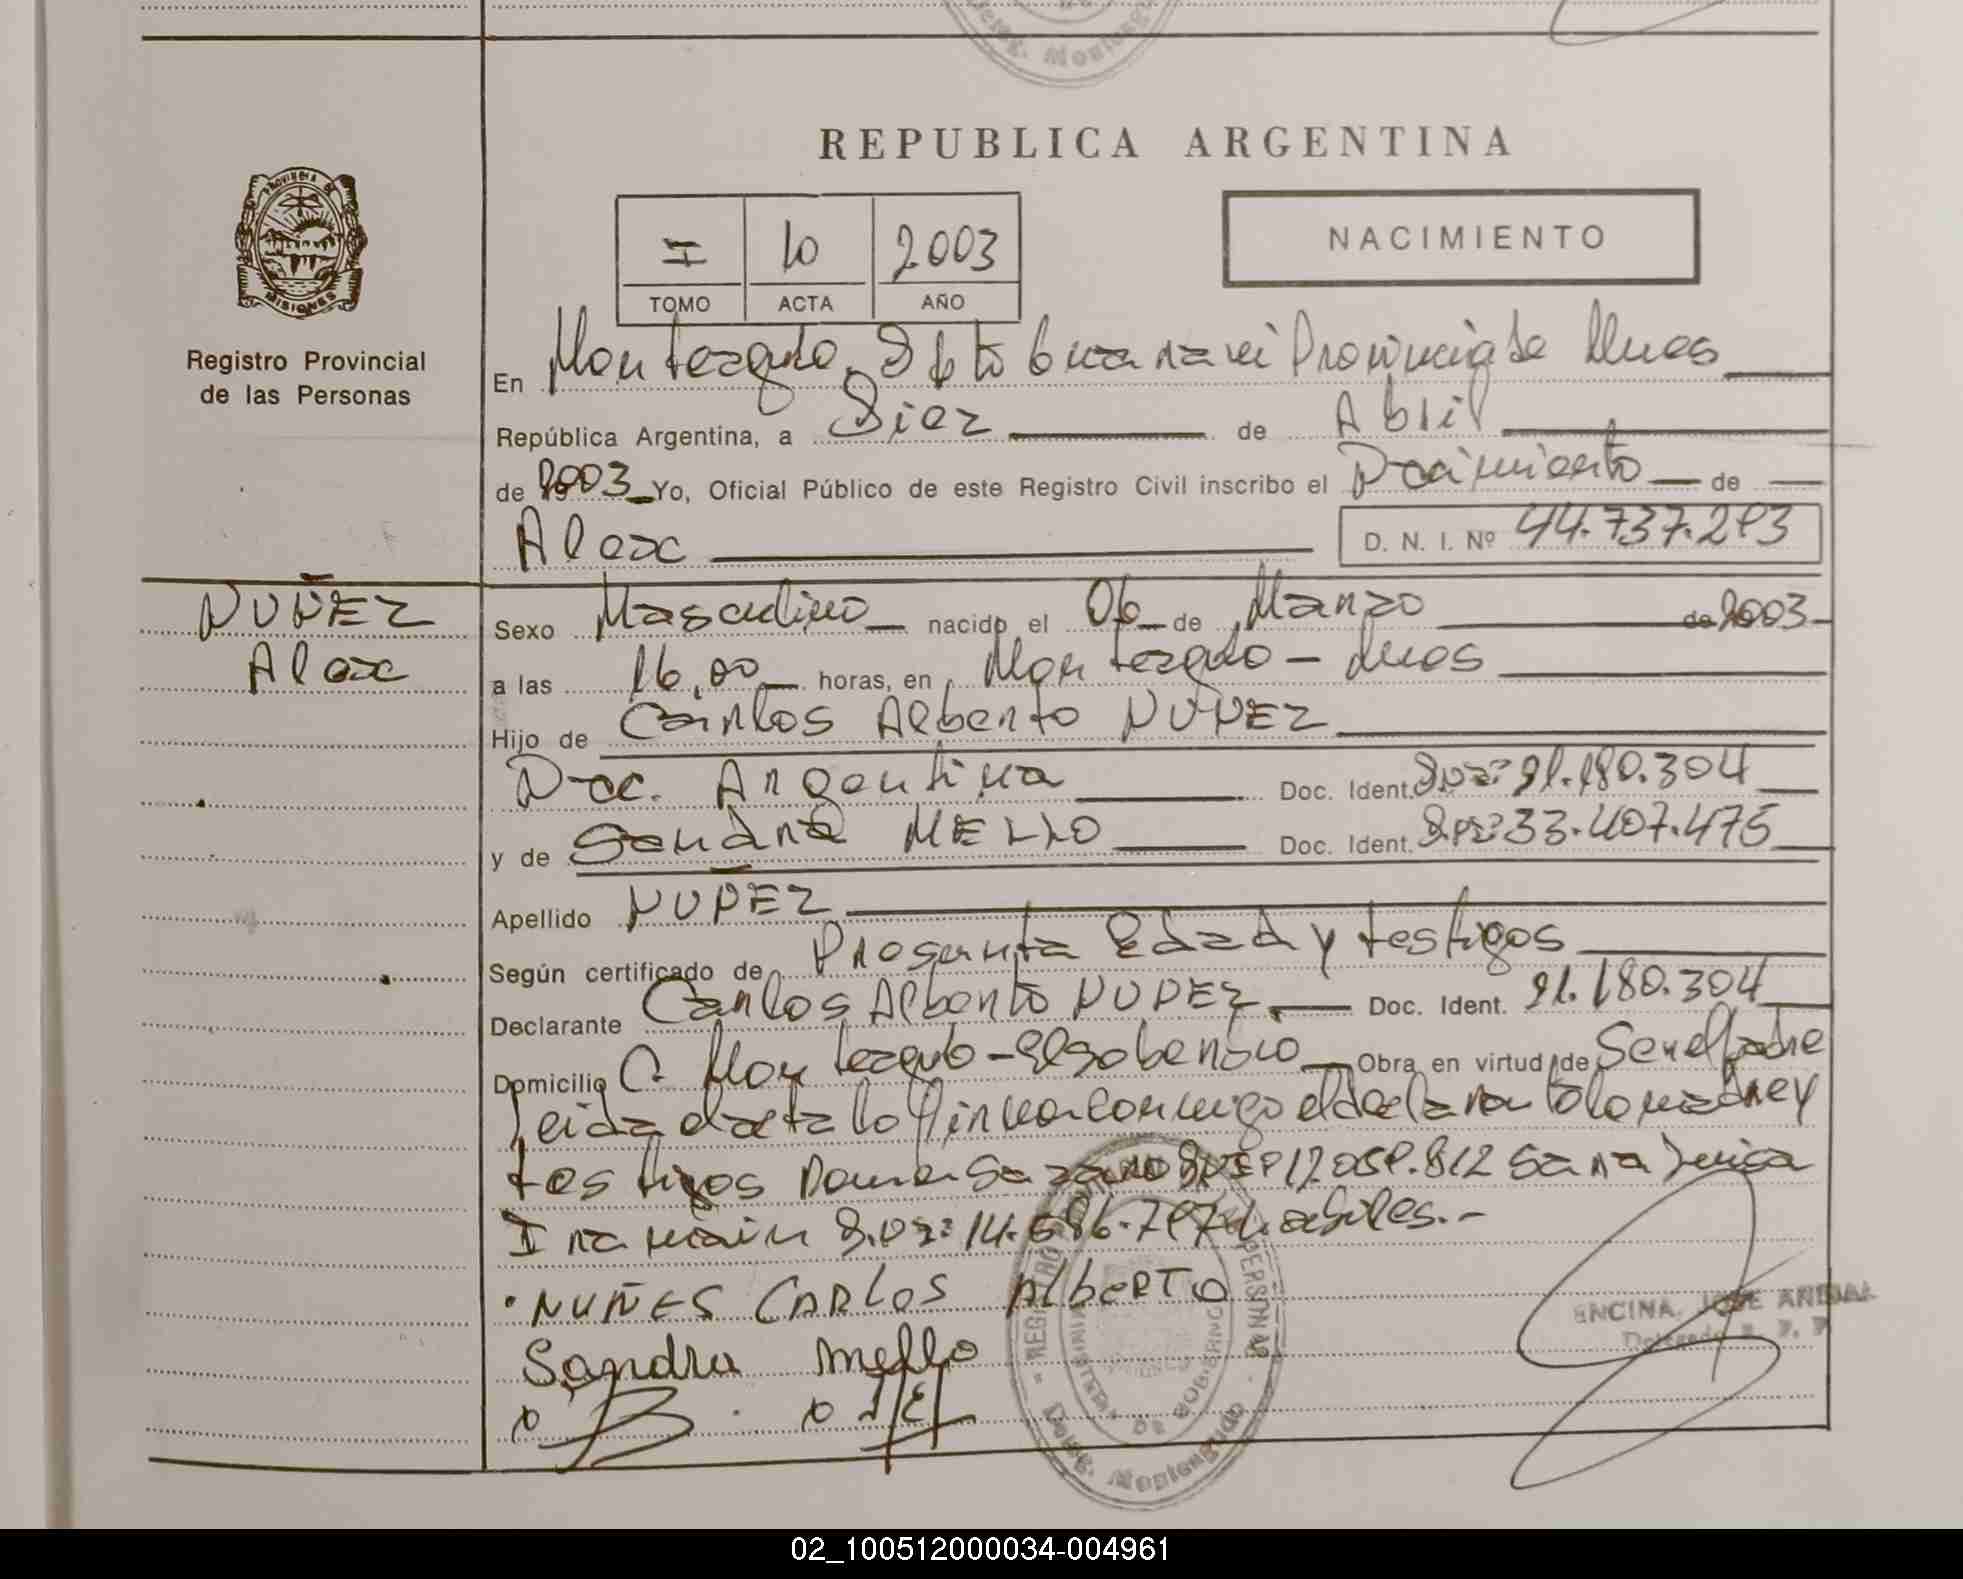 REPUBLICA ARGENTINA
PROVINCIA DE
MISIONES
Registro Provincial
de las Personas
I 10 2003
TOMO ACTA AÑO
NACIMIENTO
En Monteagudo, Dpto Guaraní Provincia de Mnes
República Argentina, a Diez de Abril
de 2003 Yo, Oficial Público de este Registro Civil inscribo el Nacimiento de
Alex D. N. I. Nº 44.737.293
NUÑEZ
Alex
Sexo Masculino nacido el 06 de Marzo de 2003
a las 16,00 horas, en Monteagudo - Mnes
Hijo de Carlos Alberto NUÑEZ
Nac. Argentina Doc. Ident. DNI: 21.180.304
y de Sandra MELLO Doc. Ident. DNI: 33.407.475
Apellido NUÑEZ
Según certificado de Presunta Edad y testigos
Declarante Carlos Alberto NUÑEZ Doc. Ident. 21.180.304
Domicilio C. Monteagudo - El Soberbio Obra en virtud de Ser el Padre
Leida el acta la firman conmigo el declarante la madre y
testigos 812 Sara Luisa
14.686.797 habiles.-
NUÑES CARLOS AlbeRTO
Sandra mello
ENCINA, JOSE ANIBAL
Delegado R. P. P.
REGISTRO PERSONAS
MINISTERIO DE GOBIERNO
Deleg. Monteagudo
Deleg. Monteagudo
02_100512000034-004961